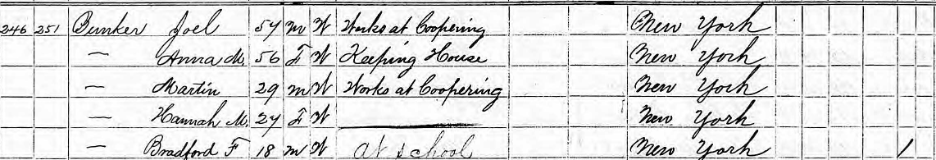 246 251 Bunker Joel 57 M W Works at Coopering New York
— Anna M. 56 F W Keeping House New York
— Martin 29 M W Works at Coopering New York
— Hannah M. 27 F W New York
— Bradford F 18 M W at School New York 1